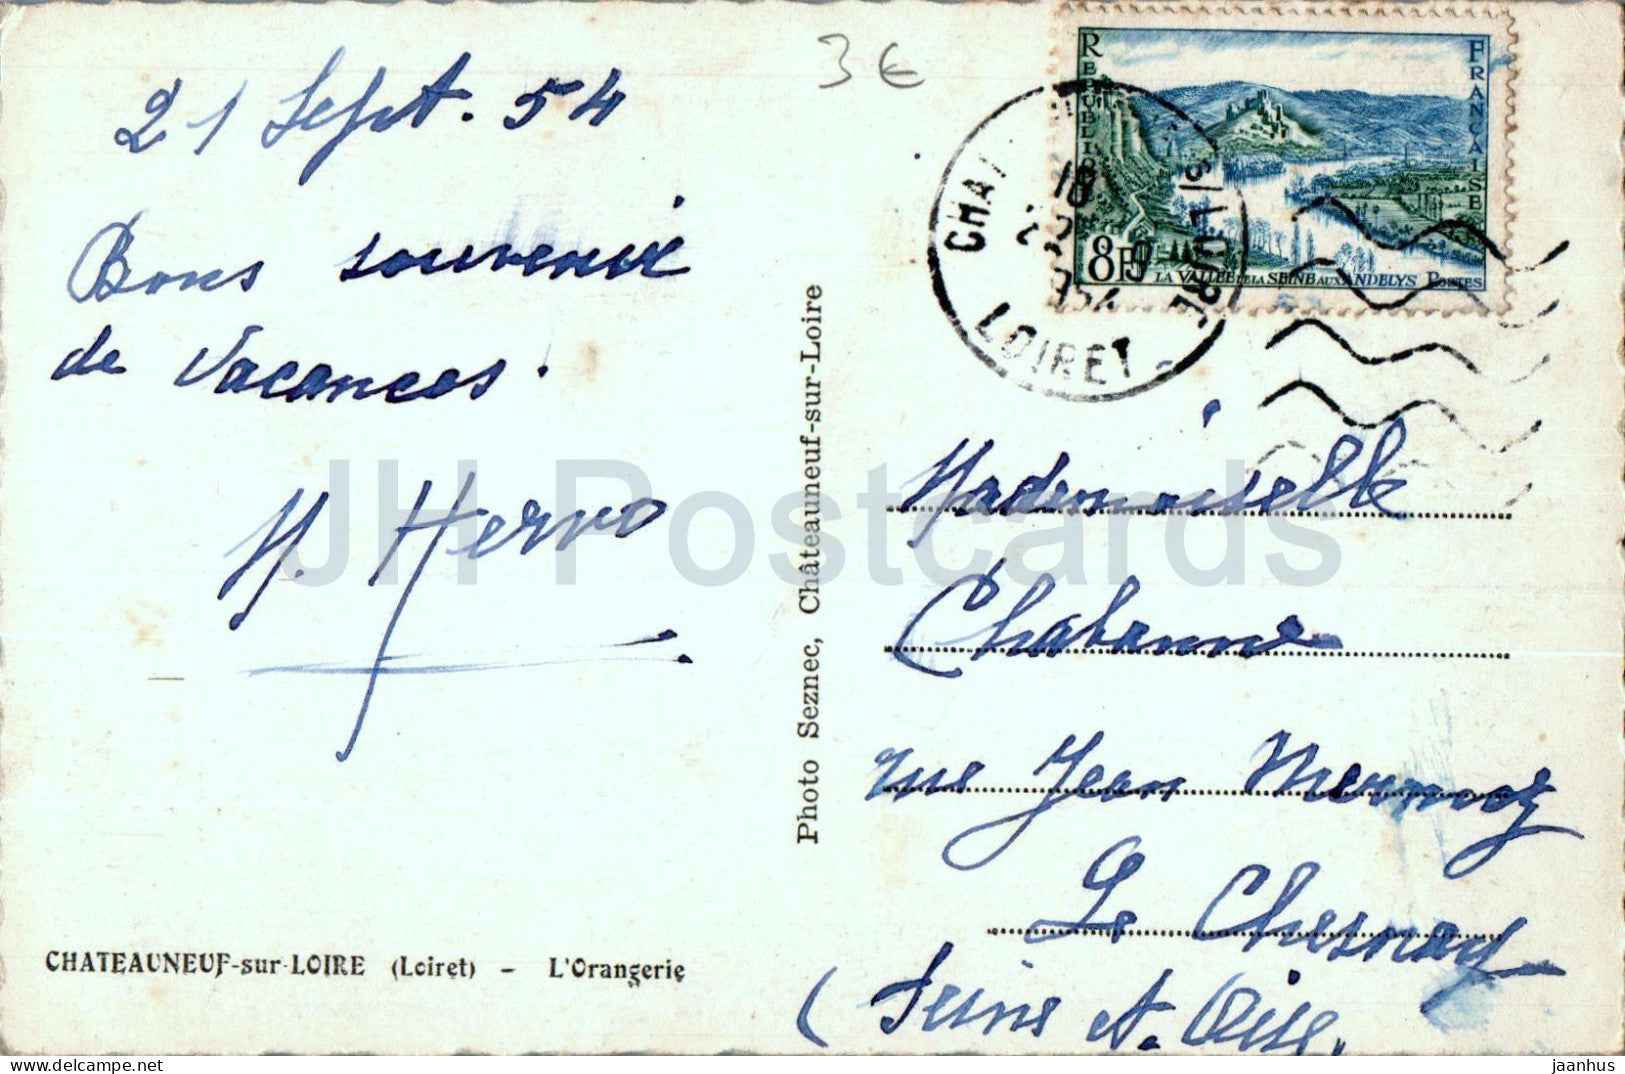 3€
21 Sept. 54
Bons souvenir
de Vacances.
H. Hervo
CHATEAUNEUF-sur-LOIRE (Loiret) - L'Orangerie
Photo Seznec, Châteauneuf-sur-Loire
REPUBLIQUE FRANÇAISE
8F
LA VALLÉE DE LA SEINE AUX ANDELYS POSTES
S/ LOIRE
18
22
9
1954
LOIRET
Mademoiselle
Chabanne
rue Jean Mermoz
Le Chesnay
(Seine et. Oise.
JH Postcards
jaanhus